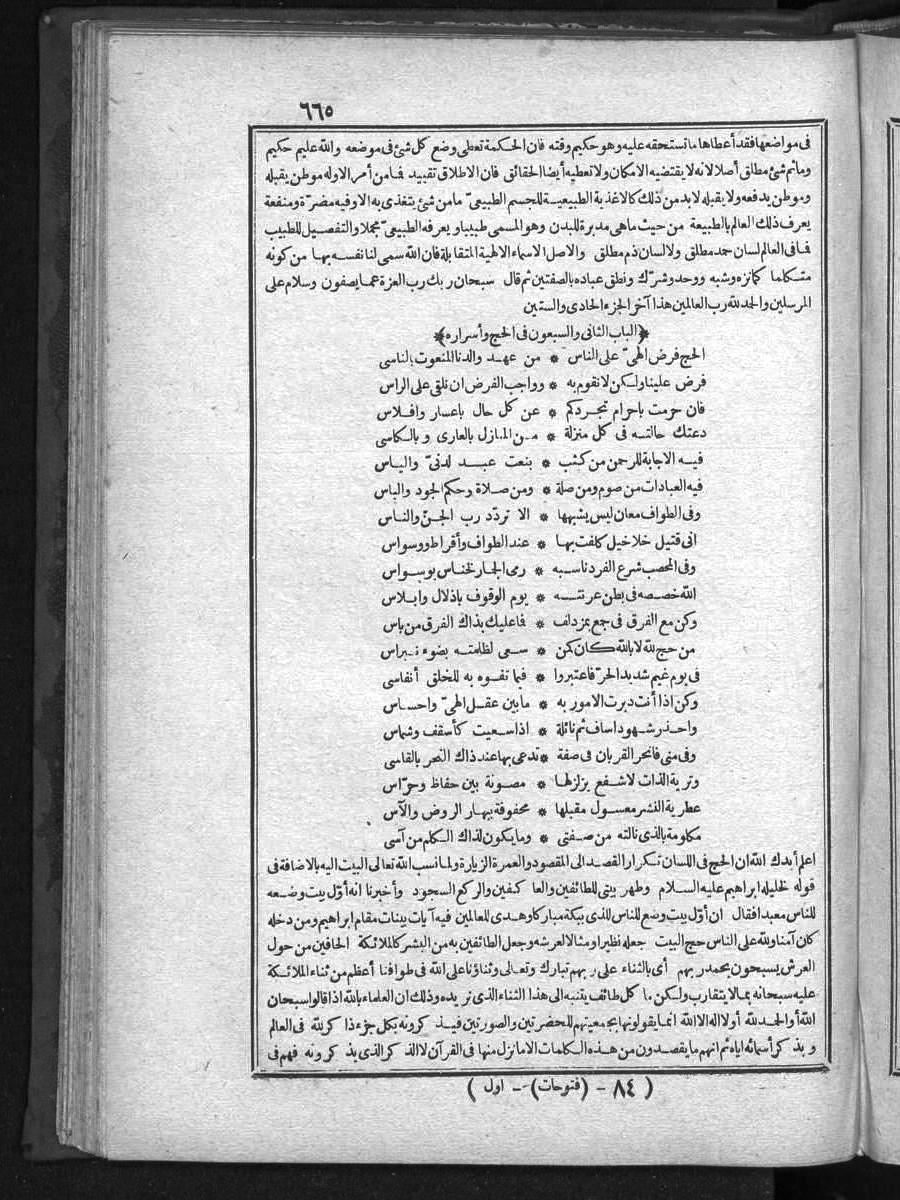 ٦٦٥
فى مواضعها فقد أعطاها ما تستحقه عليه وهو حكيم وقته فان الحكمة تعطى وضع كل شئ فى موضعه والله عليم حكيم
وما ثم شئ مطلق أصلا لانه لا يقتضيه الامكان ولا تعطيه أيضا الحقائق فان الاطلاق تقييد فما من أمر الاوله موطن يقبله
وموطن يدفعه ولا يقبله لابد من ذلك كالاغذية الطبيعية للجسم الطبيعىّ ما من شئ يتغذى به الا وفيه مضرّة ومنفعة
يعرف ذلك العالم بالطبيعة من حيث ما هى مدبرة للبدن وهو المسمى طبيبا ويعرفه الطبيعىّ مجملا والتفصيل للطبيب
فما فى العالم لسان حمد مطلق ولا لسان ذم مطلق والاصل الاسماء الالهية المتقابلة فان الله سمى لنا نفسه بها من كونه
متكلما كما نزه وشبه ووحد وشرّك ونطق عباده بالصفتين ثم قال سبحان ربك رب العزة عما يصفون وسلام على
المرسلين والحمد لله رب العالمين هذا آخر الجزء الحادى والستين
﴿الباب الثانى والسبعون فى الحج وأسراره﴾
الحج فرض الهىّ على الناس * من عهد والدنا المنعوت بالناسى
فرض علينا ولكن لا نقوم به * وواجب الفرض ان نلقى على الراس
فان حرمت باحرام تجردكم * عن كل حال باعسار وافلاس
دعتك حالته فى كل منزلة * من المنازل بالعارى وبالكاسى
فيه الاجابة للرحمن من كثب * بنعت عبد لدنىّ والياس
فيه العبادات من صوم ومن صلة * ومن صلاة وحكم الجود والباس
وفى الطواف معان ليس يشبهها * الا تردّد رب الجنّ والناس
انى قتيل خلاخيل كلفت بها * عند الطواف وأقراط ووسواس
وفى المحصب شرع الفرد ناسبه * رمى الجمار لخناس بوسواس
الله خصصه فى بطن عرنته * يوم الوقوف باذلال وابلاس
وكن مع الفرق فى جمع بمزدلف * فما عليك بذاك الفرق من باس
من حج لله لا بالله كان كمن * سعى لظلمته بضوء نبراس
فى يوم غيم شديد الحرّ فاعتبروا * فيما تفوه به للخلق أنفاسى
وكن اذا أنت دبرت الامور به * ما بين عقل الهىّ واحساس
واحذر شهود اساف ثم نائلة * اذا سعيت كأسقف وشماس
وفى منى فانحر القربان فى صفة * تدعى بها عند ذاك النحر بالقاسى
وترية الذات لا شفع يزلزلها * مصونة بين حفاظ وحرّاس
عطرية النشر معسول مقبلها * محفوفة ببهار الروض والآس
مكلومة بالذى نالته من صفتى * وما يكون لذاك الكلم من آسى
اعلم أيدك الله ان الحج فى اللسان تكرار القصد الى المقصود والعمرة الزيارة ولما نسب الله تعالى البيت اليه بالاضافة فى
قوله لخليله ابراهيم عليه السلام وطهر بيتى للطائفين والعاكفين والركع السجود وأخبرنا انه أوّل بيت وضعه
للناس معبدا فقال ان أوّل بيت وضع للناس للذى ببكة مباركا وهدى للعالمين فيه آيات بينات مقام ابراهيم ومن دخله
كان آمنا ولله على الناس حج البيت جعله نظيرا ومثالا لعرشه وجعل الطائفين به من البشر كالملائكة الحافين من حول
العرش يسبحون بحمد ربهم أى بالثناء على ربهم تبارك وتعالى وثناؤنا على الله فى طوافنا أعظم من ثناء الملائكة
عليه سبحانه بما لا يتقارب ولكن ما كل طائف يتنبه الى هذا الثناء الذى نريده وذلك ان العلماء بالله اذا قالوا سبحان
الله أو الحمد لله أو لا اله الا الله انما يقولونها بجمعيتهم للحضرتين والصورتين فيذكرونه بكل جزء ذاكر لله فى العالم
وبذكر أسمائه اياه ثم انهم ما يقصدون من هذه الكلمات الا ما نزل منها فى القرآن لا الذكر الذى يذكرونه فهم فى
( ٨٤ - (فتوحات) - اول )